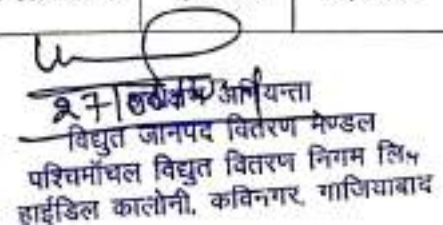 अभियन्ता
विद्युत जानपद वितरण मण्डल
पश्चिमाँचल विद्युत वितरण निगम लि॰
हाईडिल कालोनी, कविनगर, गाजियाबाद